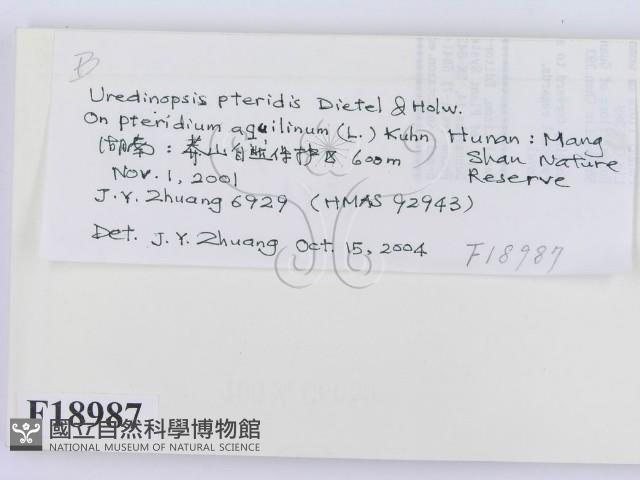 B
Uredinopsis pteridis Dietel & Holw.
On pteridium aquilinum (L.) Kuhn Hunan : Mang
湖南 : 莽山自然保护区 600m Shan Nature
Nov. 1, 2001 Reserve
J. Y. Zhuang 6929 (HMAS 92943)
Det. J. Y. Zhuang Oct. 15, 2004 F18987
F18987
國立自然科學博物館
NATIONAL MUSEUM OF NATURAL SCIENCE